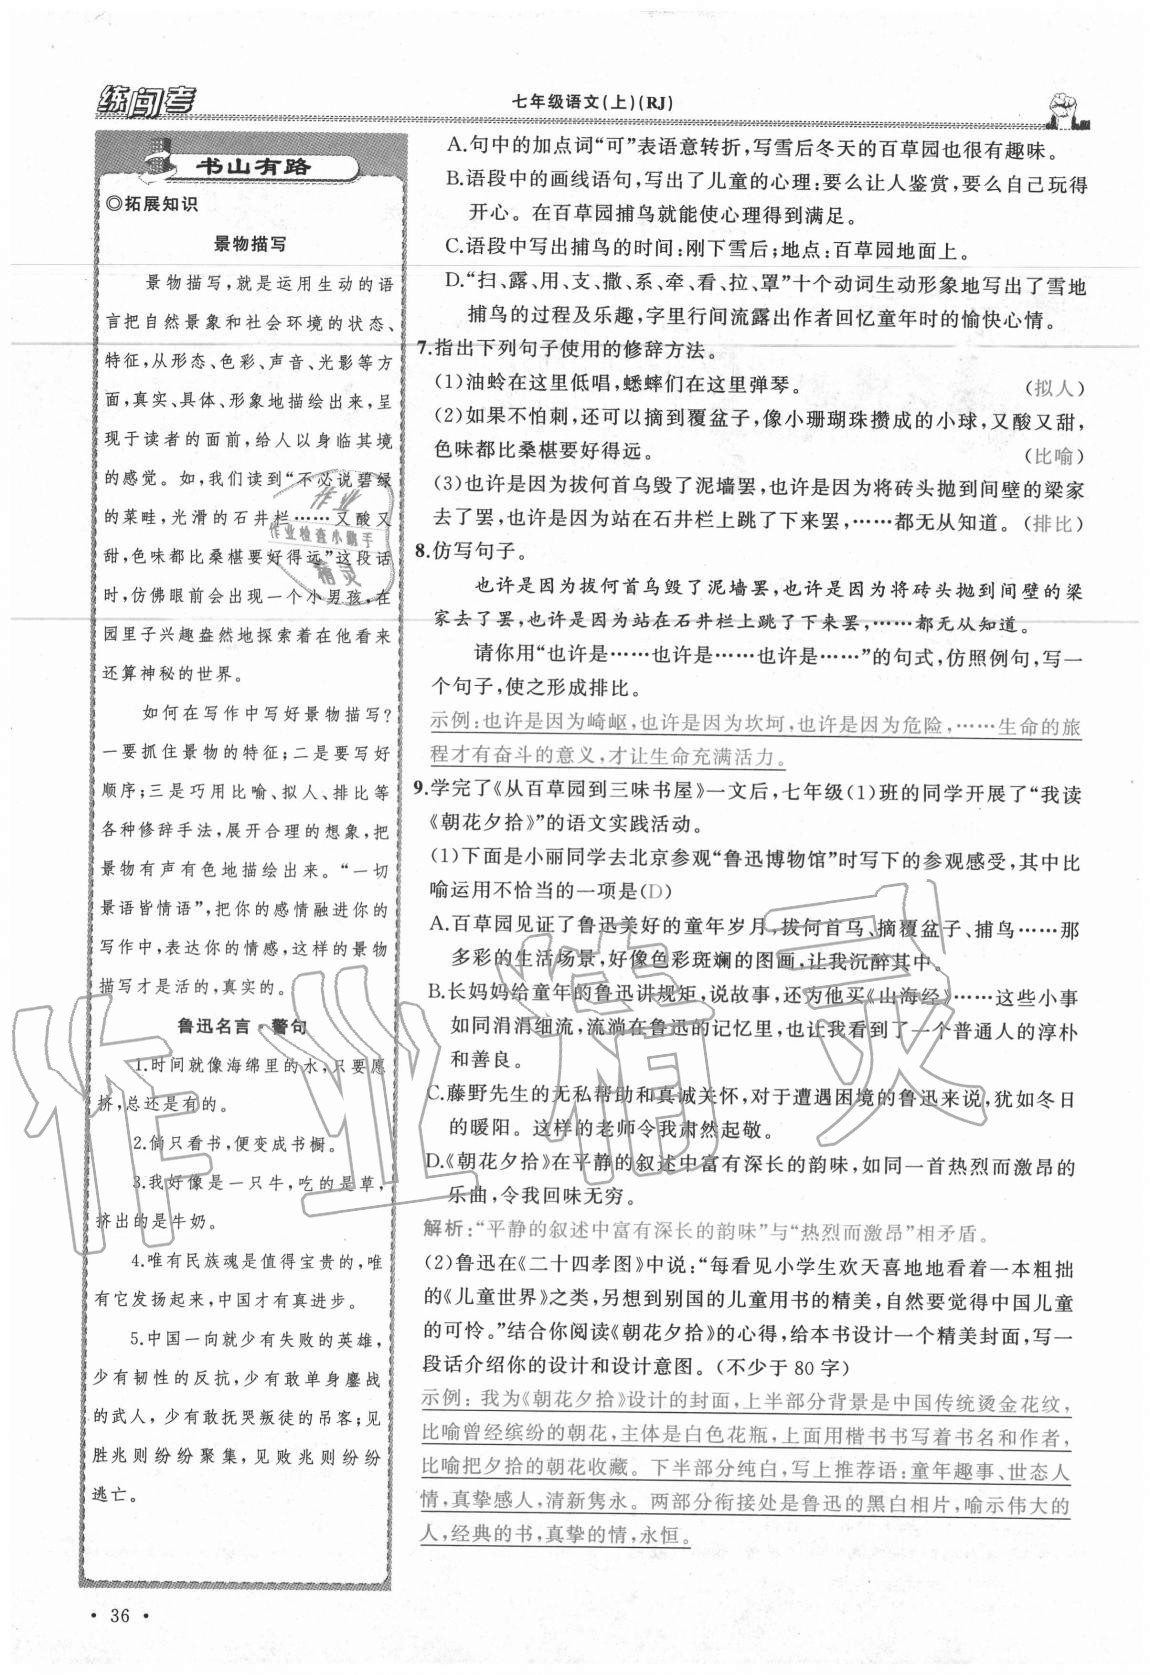 练闯考
七年级语文(上)(RJ)
书山有路
◎拓展知识
景物描写
景物描写,就是运用生动的语
言把自然景象和社会环境的状态、
特征,从形态、色彩、声音、光影等方
面,真实、具体、形象地描绘出来,呈
现于读者的面前,给人以身临其境
的感觉。如,我们读到“不必说碧绿
的菜畦,光滑的石井栏……又酸又
甜,色味都比桑椹要好得远”这段话
时,仿佛眼前会出现一个小男孩,在
园里子兴趣盎然地探索着在他看来
还算神秘的世界。
如何在写作中写好景物描写?
一要抓住景物的特征;二是要写好
顺序;三是巧用比喻、拟人、排比等
各种修辞手法,展开合理的想象,把
景物有声有色地描绘出来。“一切
景语皆情语”,把你的感情融进你的
写作中,表达你的情感,这样的景物
描写才是活的,真实的。
鲁迅名言·警句
1.时间就像海绵里的水,只要愿
挤,总还是有的。
2.倘只看书,便变成书橱。
3.我好像是一只牛,吃的是草,
挤出的是牛奶。
4.唯有民族魂是值得宝贵的,唯
有它发扬起来,中国才有真进步。
5.中国一向就少有失败的英雄,
少有韧性的反抗,少有敢单身鏖战
的武人,少有敢抚哭叛徒的吊客;见
胜兆则纷纷聚集,见败兆则纷纷
逃亡。
A.句中的加点词“可”表语意转折,写雪后冬天的百草园也很有趣味。
B.语段中的画线语句,写出了儿童的心理:要么让人鉴赏,要么自己玩得
开心。在百草园捕鸟就能使心理得到满足。
C.语段中写出捕鸟的时间:刚下雪后;地点:百草园地面上。
D.“扫、露、用、支、撒、系、牵、看、拉、罩”十个动词生动形象地写出了雪地
捕鸟的过程及乐趣,字里行间流露出作者回忆童年时的愉快心情。
7.指出下列句子使用的修辞方法。
(1)油蛉在这里低唱,蟋蟀们在这里弹琴。(拟人)
(2)如果不怕刺,还可以摘到覆盆子,像小珊瑚珠攒成的小球,又酸又甜,
色味都比桑椹要好得远。(比喻)
(3)也许是因为拔何首乌毁了泥墙罢,也许是因为将砖头抛到间壁的梁家
去了罢,也许是因为站在石井栏上跳了下来罢,……都无从知道。(排比)
8.仿写句子。
也许是因为拔何首乌毁了泥墙罢,也许是因为将砖头抛到间壁的梁
家去了罢,也许是因为站在石井栏上跳了下来罢,……都无从知道。
请你用“也许是……也许是……也许是……”的句式,仿照例句,写一
个句子,使之形成排比。
示例:也许是因为崎岖,也许是因为坎坷,也许是因为危险,……生命的旅
程才有奋斗的意义,才让生命充满活力。
9.学完了《从百草园到三味书屋》一文后,七年级(1)班的同学开展了“我读
《朝花夕拾》”的语文实践活动。
(1)下面是小丽同学去北京参观“鲁迅博物馆”时写下的参观感受,其中比
喻运用不恰当的一项是(D)
A.百草园见证了鲁迅美好的童年岁月,拔何首乌、摘覆盆子、捕鸟……那
多彩的生活场景,好像色彩斑斓的图画,让我沉醉其中。
B.长妈妈给童年的鲁迅讲规矩,说故事,还为他买《山海经》……这些小事
如同涓涓细流,流淌在鲁迅的记忆里,也让我感受到了一个普通人的淳朴
和善良。
C.藤野先生的无私帮助和真诚关怀,对于遭遇困境的鲁迅来说,犹如冬日
的暖阳。这样的老师令我肃然起敬。
D.《朝花夕拾》在平静的叙述中富有深长的韵味,如同一首热烈而激昂的
乐曲,令我回味无穷。
解析:“平静的叙述中富有深长的韵味”与“热烈而激昂”相矛盾。
(2)鲁迅在《二十四孝图》中说:“每看见小学生欢天喜地地看着一本粗拙
的《儿童世界》之类,另想到别国的儿童用书的精美,自然要觉得中国儿童
的可怜。”结合你阅读《朝花夕拾》的心得,给本书设计一个精美封面,写一
段话介绍你的设计和设计意图。(不少于80字)
示例:我为《朝花夕拾》设计的封面,上半部分背景是中国传统烫金花纹,
比喻曾经缤纷的朝花,主体是白色花瓶,上面用楷书书写着书名和作者,
比喻把夕拾的朝花收藏。下半部分纯白,写上推荐语:童年趣事、世态人
情,真挚感人,清新隽永。两部分衔接处是鲁迅的黑白相片,喻示伟大的
人,经典的书,真挚的情,永恒。
作业
作业检查小助手
精灵
作业精灵
·36·